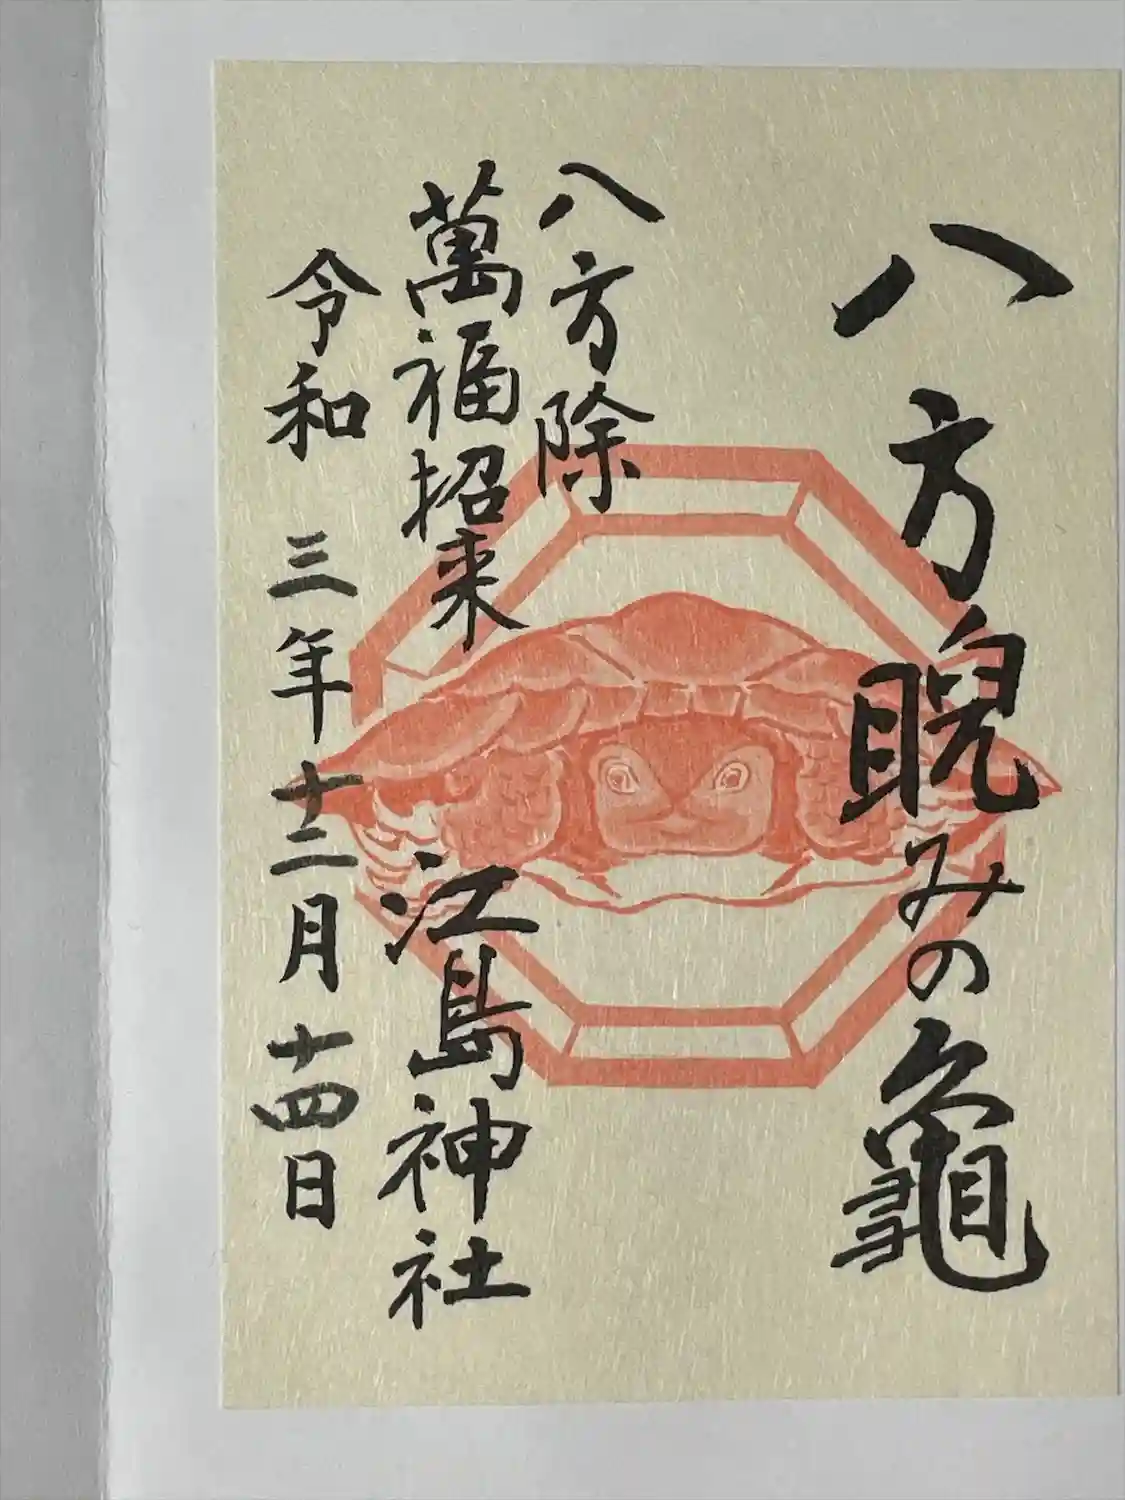 八方睨みの龜
八方除
萬福招来
江島神社
令和三年十二月十四日